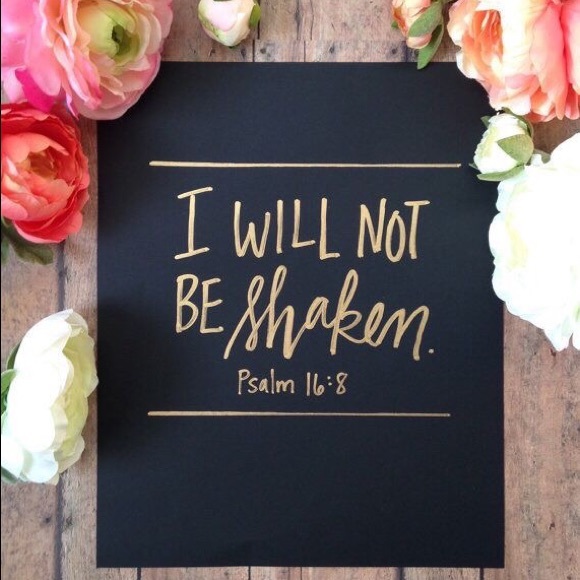 I WILL NOT
BE shaken.
Psalm 16:8